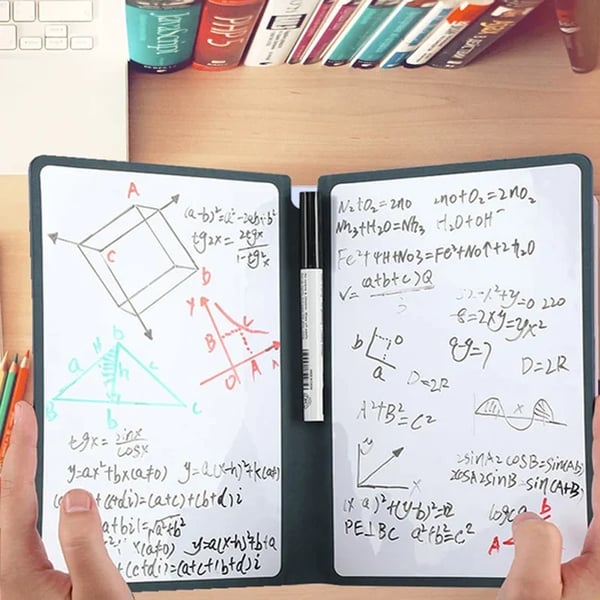 JavaScript
PHP 5
A
(a-b)²=a²-2ab+b²
tg2x= 2tgx
1-tg²x
C
D
y
B
O A x
a H b c
h
B b C
tgx= sinx
cosx
y=ax²+bx(a≠0) y=a(x-h)²+k(a≠
+(c+di)=(a+c)+(b+d)i
a+bi|=√a²+b²
x(a≠0) y=a(x-h)²+b+a
+(c+di)=(a+c+(b+d)i
N₂+O₂=2no 2no+O₂=2nO₂
Nh₃+H₂O=Nh₃ H₂O+OH⁻
Fe²+4H+No3=Fe³+No↑+2h₂O
V= (a+b+c)Q
3
=2xy=yx²
b O
a
D=2R
D=2R
A²+B²=C²
x
y
x
2sinA2cosB=sin(AB)
2cosA2sinB=sin(A+B)
(x-a)²+(y-b)²=
PE⊥BC a²+b²=c²
logca
b
A